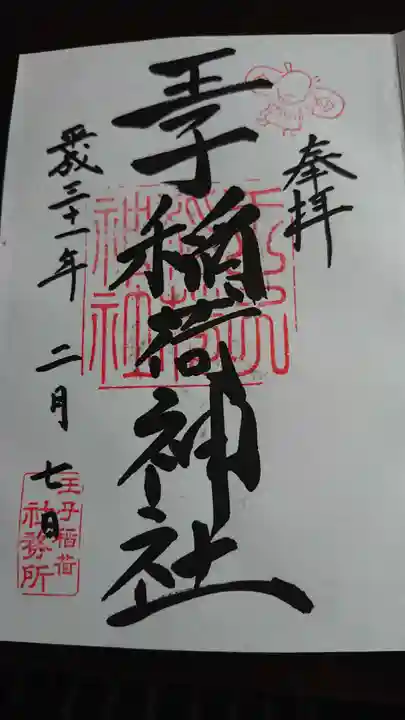 奉拝
王子稲荷神社
平成三十一年 二月 七日
王子稲荷
社務所